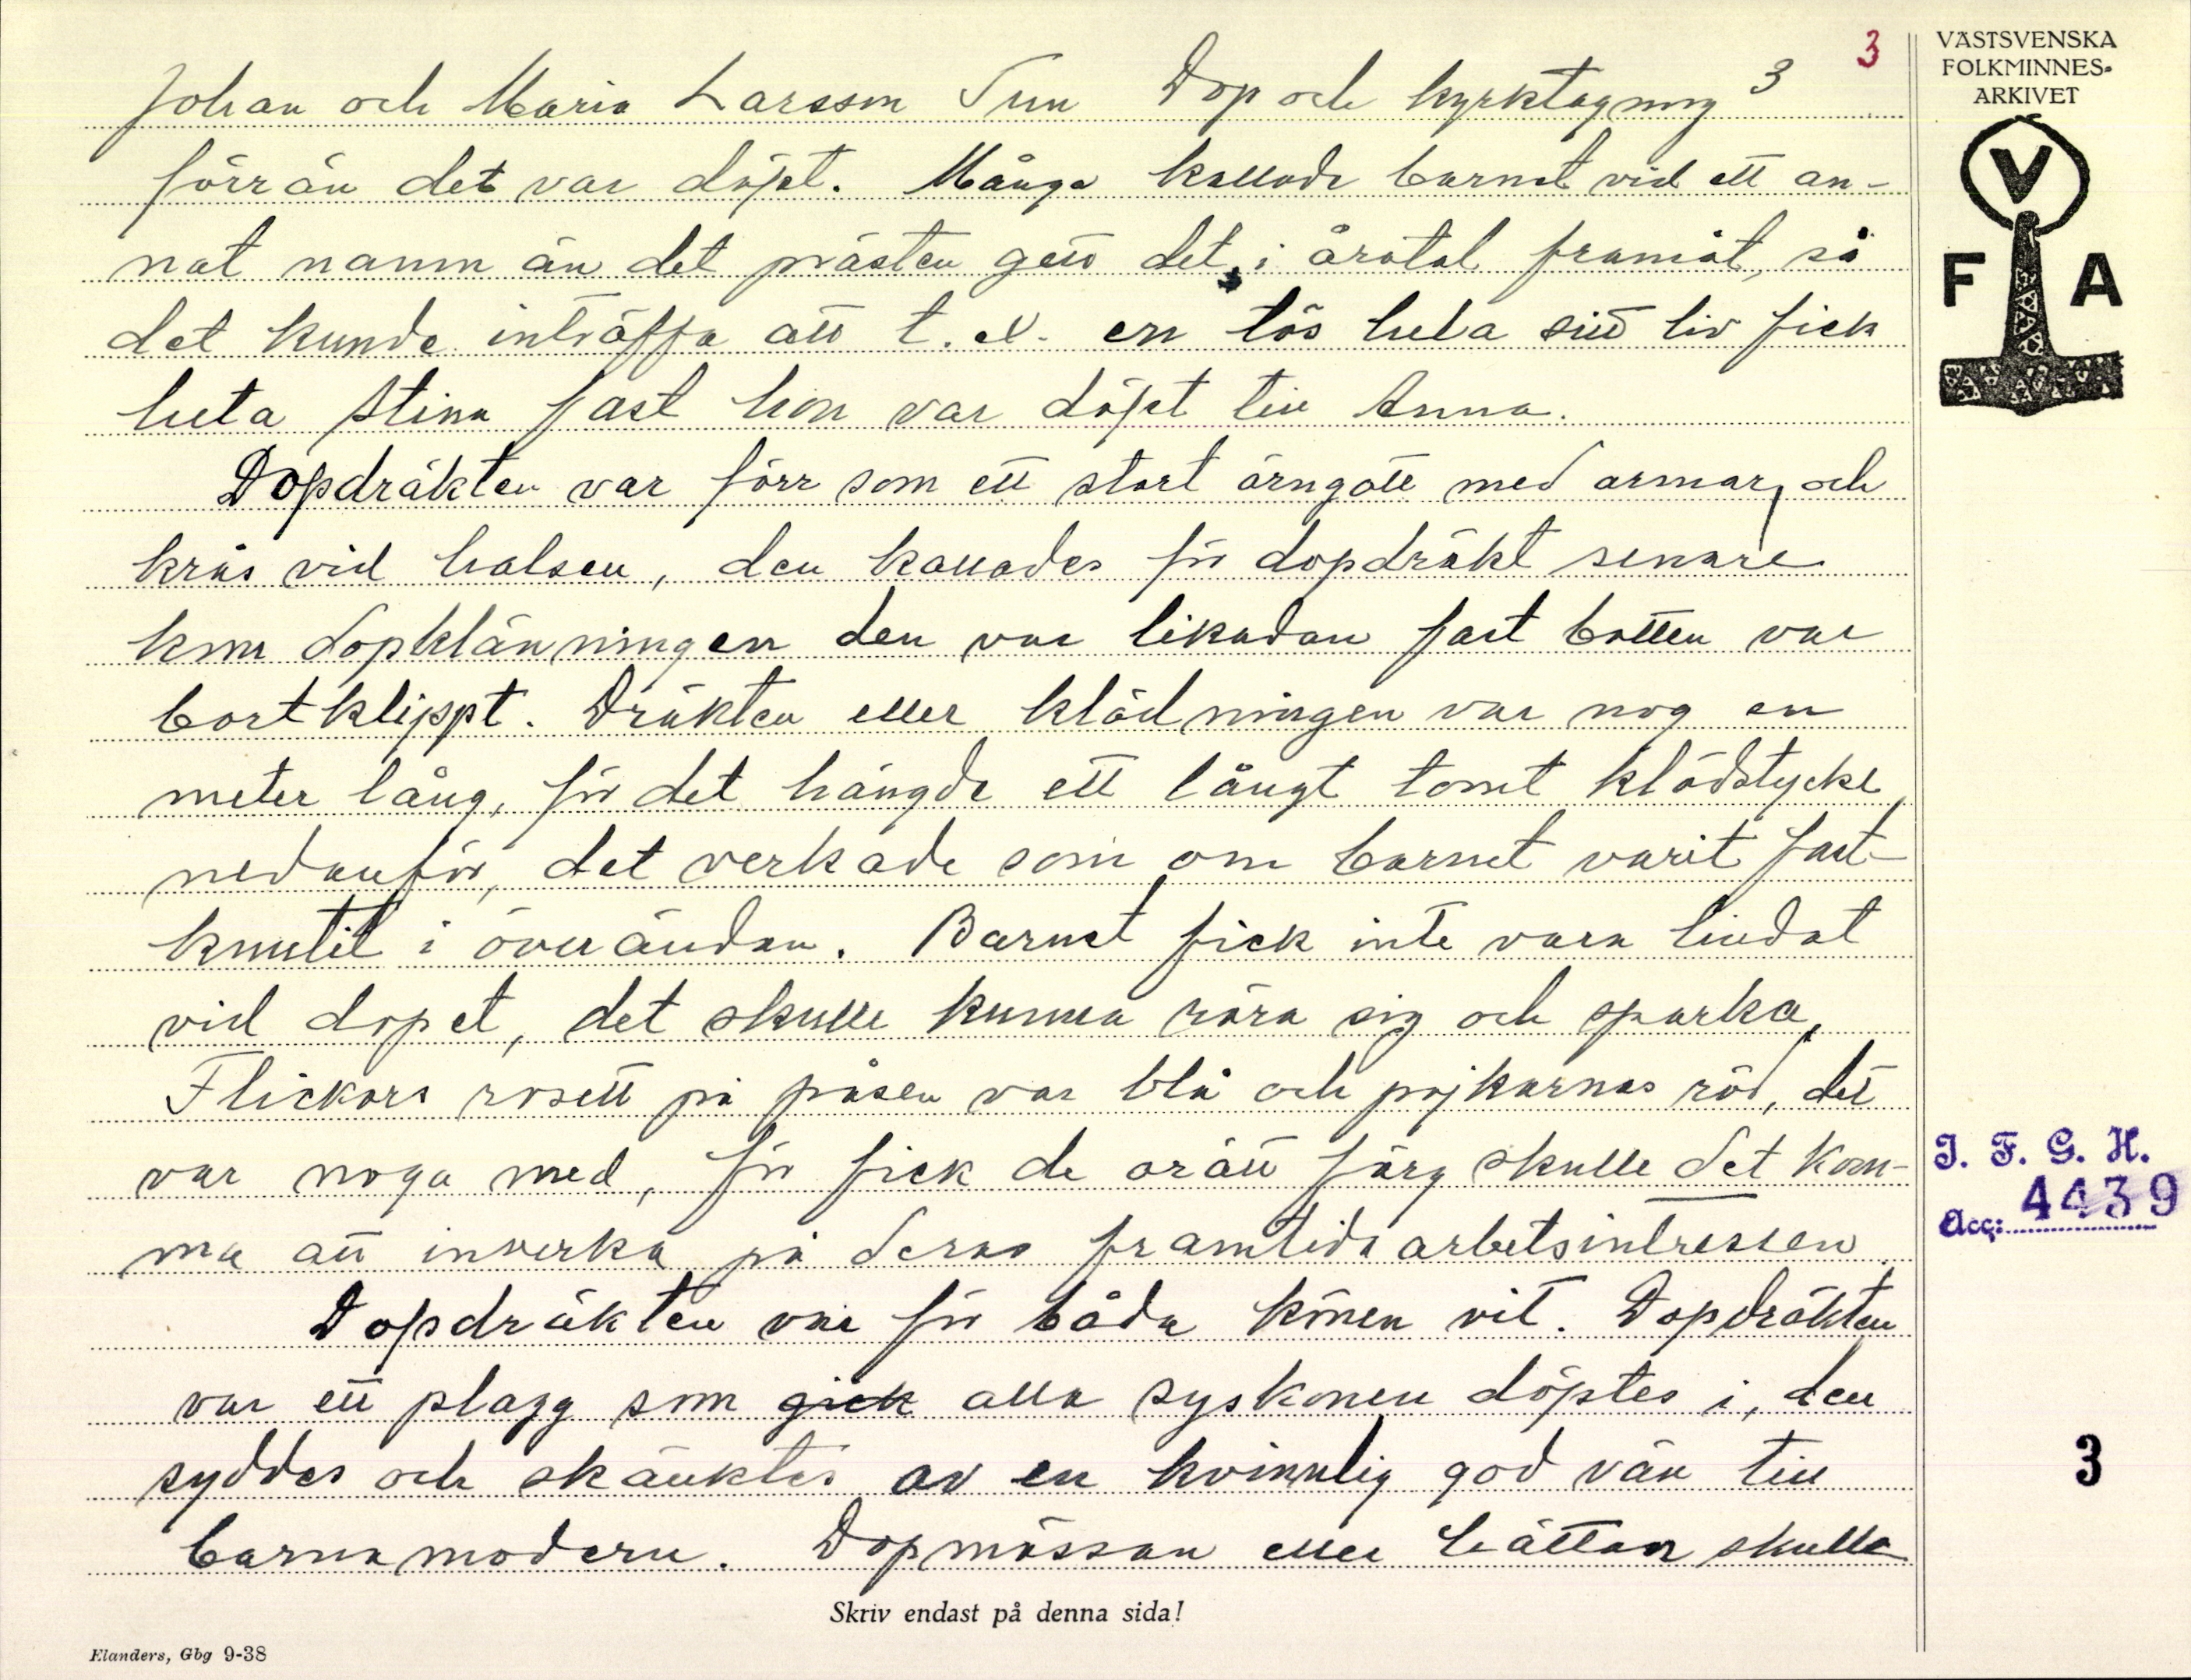 3
Johan och Maria Larsson Tun Dop och kyrktagning 3
förrän det var döpt. Många kallade barnet vid ett an-
nat namn än det prästen gett det, i åratal framåt, så
det kunde inträffa att t. ex. en tös hela sitt liv fick
heta Stina fast hon var döpt till Anna.
Dopdräkten var förr som ett stort örngott med armar, och
krås vid halsen, den kallades för dopdräkt senare
kom dopklänningen den var likadan fast botten var
bortklippt. Dräkten eller klädningen var nog en
meter lång, för det hängde ett långt tomt klädstycke
nedanför, det verkade som om barnet varit fast-
knutit i överändan. Barnet fick inte vara lindat
vid dopet, det skulle kunna röra sig och sparka,
Flickors rosett på påsen var blå och pojkarnas röd, det
var noga med, för fick de orätt färg skulle det kom-
ma att inverka på deras framtida arbetsintressen.
Dopdräkten var för båda könen vit. Dopdräkten
var ett plagg som gick alla syskonen döptes i, den
syddes och skänktes av en kvinnlig god vän till
barnamodern. Dopmössan eller hättan skulle
Skriv endast på denna sida!
Elanders, Gbg 9-38
VÄSTSVENSKA
FOLKMINNES-
ARKIVET
V
F A
I. F. G. H.
Acc: 4439
3